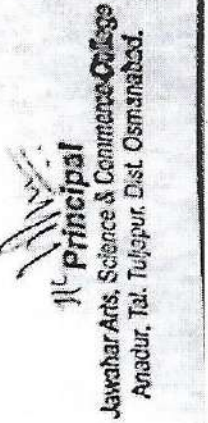 Principal
Jawahar Arts, Science & Commerce College
Anadur, Tal. Tuljapur, Dist. Osmanabad.